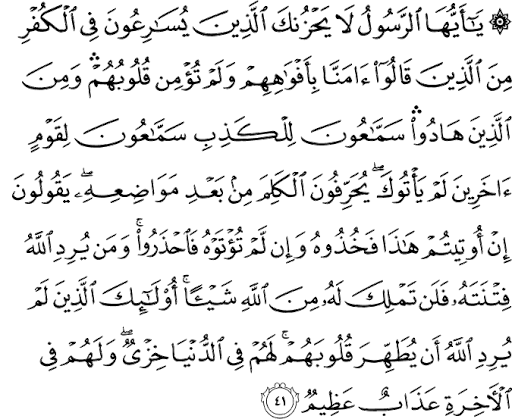 ۞ يَٰٓأَيُّهَا ٱلرَّسُولُ لَا يَحْزُنكَ ٱلَّذِينَ يُسَٰرِعُونَ فِى ٱلْكُفْرِ
مِنَ ٱلَّذِينَ قَالُوٓا۟ ءَامَنَّا بِأَفْوَٰهِهِمْ وَلَمْ تُؤْمِن قُلُوبُهُمْ ۛ وَمِنَ
ٱلَّذِينَ هَادُوا۟ ۛ سَمَّٰعُونَ لِلْكَذِبِ سَمَّٰعُونَ لِقَوْمٍ
ءَاخَرِينَ لَمْ يَأْتُوكَ ۖ يُحَرِّفُونَ ٱلْكَلِمَ مِنۢ بَعْدِ مَوَاضِعِهِۦ ۖ يَقُولُونَ
إِنْ أُوتِيتُمْ هَٰذَا فَخُذُوهُ وَإِن لَّمْ تُؤْتَوْهُ فَٱحْذَرُوا۟ ۚ وَمَن يُرِدِ ٱللَّهُ
فِتْنَتَهُۥ فَلَن تَمْلِكَ لَهُۥ مِنَ ٱللَّهِ شَيْـًٔا ۚ أُو۟لَٰٓئِكَ ٱلَّذِينَ لَمْ
يُرِدِ ٱللَّهُ أَن يُطَهِّرَ قُلُوبَهُمْ ۚ لَهُمْ فِى ٱلدُّنْيَا خِزْىٌ ۖ وَلَهُمْ فِى
ٱلْءَاخِرَةِ عَذَابٌ عَظِيمٌ ٤١